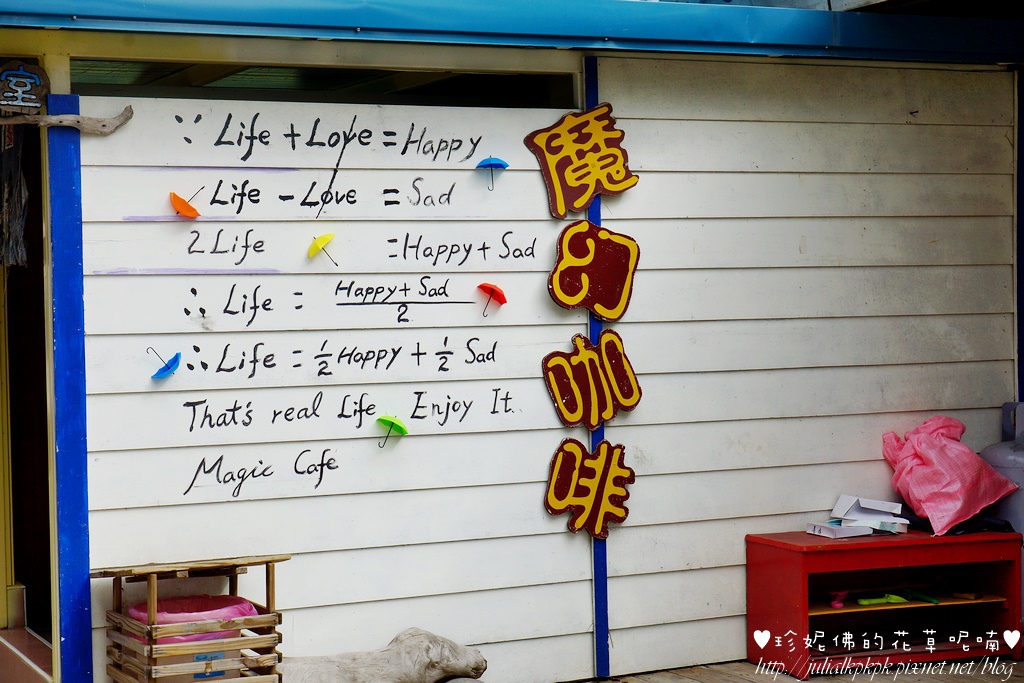 室
∵ Life + Love = Happy
Life - Love = Sad
2 Life = Happy + Sad
∴ Life = Happy + Sad / 2
∴ Life = 1/2 Happy + 1/2 Sad
That's real Life Enjoy It.
Magic Cafe
魔幻咖啡
♥珍妮佛的花草呢喃♥
http://julialkpkpk.pixnet.net/blog